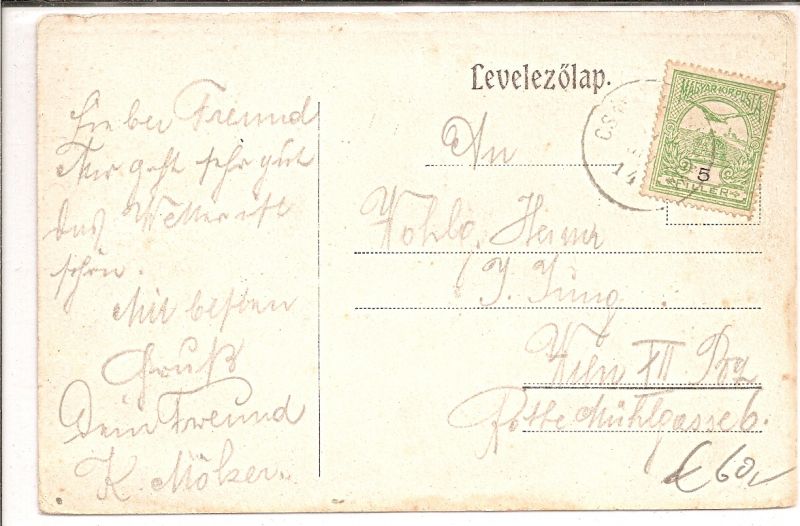 Levelezőlap.
MAGYAR KIR. POSTA
5
FILLER
CS
14
Lieber Freund
Mir geht sehr gut
das Wetter ist
schön.
Mit besten
Gruß
Dein Freund
K. Mölzer.
An
Wohlg. Herrn
J. Jung
Wien XII Bez
Rothe Mühlgasse 6.
€ 60,-